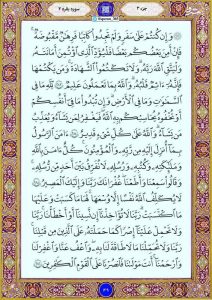 جزء ۳
سورة بقرة ۲
وَإِن كُنتُمْ عَلَىٰ سَفَرٍ وَلَمْ تَجِدُوا كَاتِبًا فَرِهَانٌ مَّقْبُوضَةٌ
فَإِنْ أَمِنَ بَعْضُكُم بَعْضًا فَلْيُؤَدِّ الَّذِي اؤْتُمِنَ أَمَانَتَهُ
وَلْيَتَّقِ اللَّهَ رَبَّهُ وَلَا تَكْتُمُوا الشَّهَادَةَ وَمَن يَكْتُمْهَا
فَإِنَّهُ آثِمٌ قَلْبُهُ وَاللَّهُ بِمَا تَعْمَلُونَ عَلِيمٌ لِلَّهِ مَا فِي
السَّمَاوَاتِ وَمَا فِي الْأَرْضِ وَإِن تُبْدُوا مَا فِي أَنفُسِكُمْ
أَوْ تُخْفُوهُ يُحَاسِبْكُم بِهِ اللَّهُ فَيَغْفِرُ لِمَن يَشَاءُ وَيُعَذِّبُ
مَن يَشَاءُ وَاللَّهُ عَلَىٰ كُلِّ شَيْءٍ قَدِيرٌ آمَنَ الرَّسُولُ
بِمَا أُنزِلَ إِلَيْهِ مِن رَّبِّهِ وَالْمُؤْمِنُونَ كُلٌّ آمَنَ بِاللَّهِ
وَمَلَائِكَتِهِ وَكُتُبِهِ وَرُسُلِهِ لَا نُفَرِّقُ بَيْنَ أَحَدٍ مِّن رُّسُلِهِ
وَقَالُوا سَمِعْنَا وَأَطَعْنَا غُفْرَانَكَ رَبَّنَا وَإِلَيْكَ الْمَصِيرُ
لَا يُكَلِّفُ اللَّهُ نَفْسًا إِلَّا وُسْعَهَا لَهَا مَا كَسَبَتْ وَعَلَيْهَا
مَا اكْتَسَبَتْ رَبَّنَا لَا تُؤَاخِذْنَا إِن نَّسِينَا أَوْ أَخْطَأْنَا رَبَّنَا
وَلَا تَحْمِلْ عَلَيْنَا إِصْرًا كَمَا حَمَلْتَهُ عَلَى الَّذِينَ مِن قَبْلِنَا
رَبَّنَا وَلَا تُحَمِّلْنَا مَا لَا طَاقَةَ لَنَا بِهِ وَاعْفُ عَنَّا وَاغْفِرْ لَنَا
وَارْحَمْنَا أَنتَ مَوْلَانَا فَانصُرْنَا عَلَى الْقَوْمِ الْكَافِرِينَ
۴۹